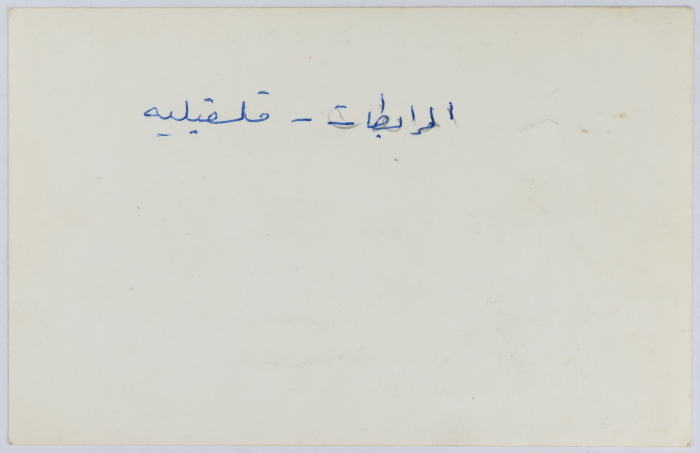 المرابطات - قلقيليه